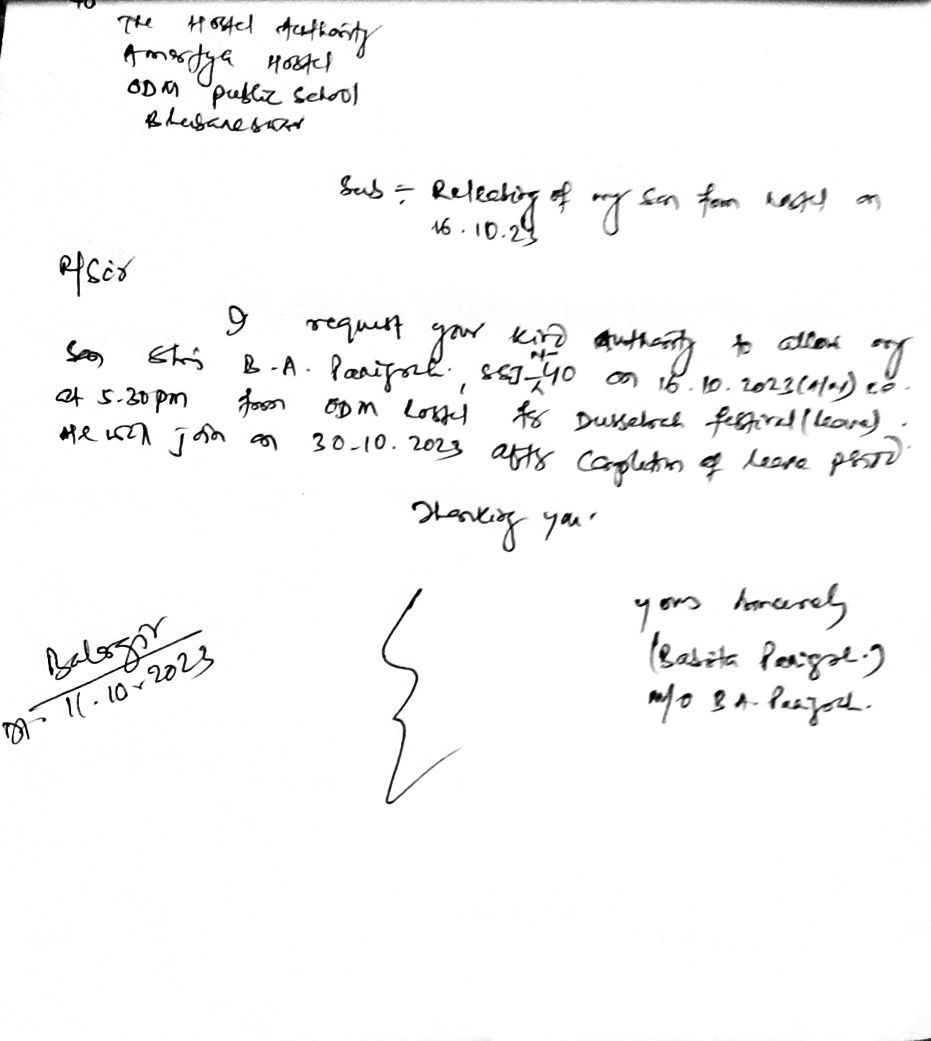 To
The Hostel Authority
Amartya Hostel
ODM Public School
Bhubaneswar
Sub :- Releasing of my son from hostel on
16.10.23
R/Sir
I request your kind authority to allow my
son B.A. Panigrahi, on 16.10.2023
at 5.30pm from ODM hostel for Dussehra festival (leave).
He will join on 30-10.2023 after completion of leave period
Thanking you.
yours sincerely
(Babita Panigrahi)
m/o B.A. Panigrahi.
Balangir
Dt- 11.10.2023